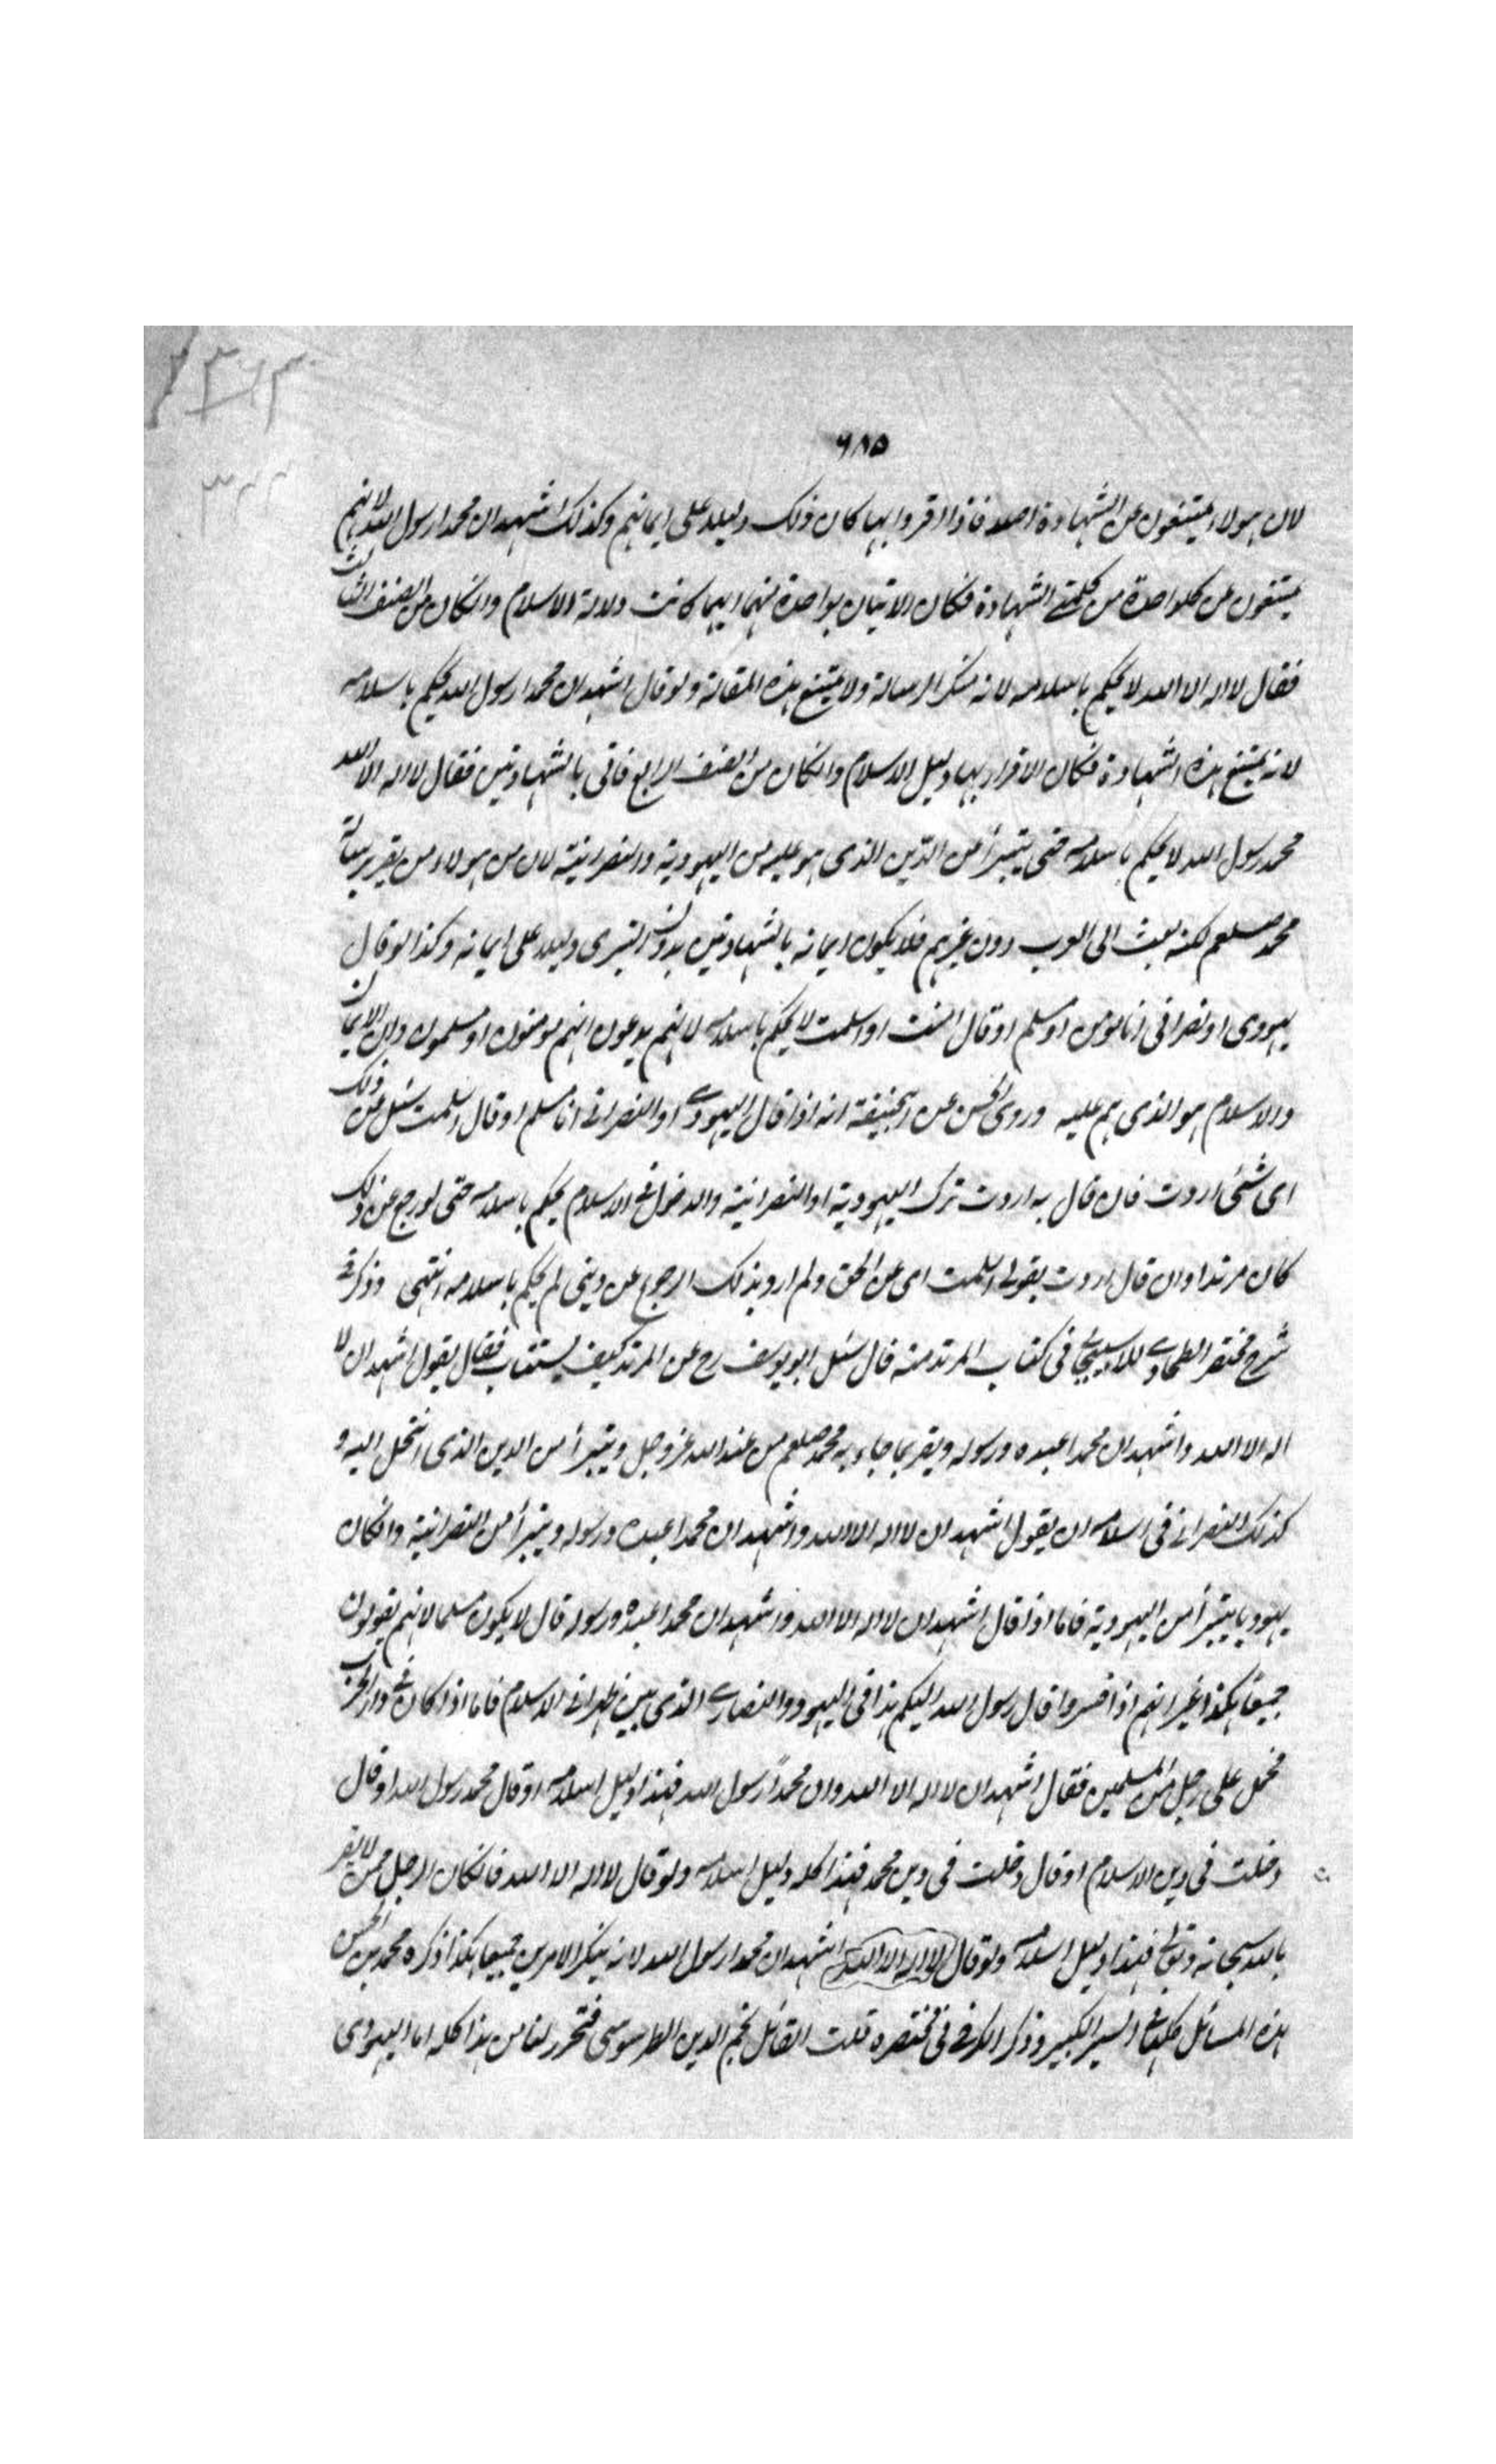 ٦٨٥
لان هولاء يمتنعون عن الشهادة اصلا فاذا اقروا بها كان ذلك دليلا على ايمانهم وكذلك اشهد ان محمدا رسول الله لانهم
يمتنعون عن كل واحدة من كلمتے الشهادة فكان الاتيان بواحدة منهما ايما كانت دلالة الاسلام وانكان من الصنف الثالث
فقال لا اله الا الله لا يحكم باسلامه لانه منكر الرسالة ولا يمتنع هذه المقالة ولو قال اشهد ان محمدا رسول الله يحكم باسلامه
لانه يمتنع هذه الشهادة فكان الاقرار بها دليل الاسلام وانكان من الصنف الرابع فاتى بالشهادتين فقال لا اله الا الله
محمد رسول الله لا يحكم باسلامه حتى يتبرأ من الدين الذى هو عليه من اليهودية والنصرانية لان من هولاء من يقر برسالة
محمد صلعم لكنه بعث الى العرب دون غيرهم فلا يكون ايمانه بالشهادتين بدون التبرى دليلا على ايمانه وكذا لو قال
يهودى او نصرانى انا مومن او مسلم او قال امنت او اسلمت لا يحكم باسلامه لانهم يدعون انهم مومنون او مسلمون وان الايمان
والاسلام هو الذى هم عليه وروى الحسن عن ابيحنيفة انه اذا قال اليهودے او النصرانے انا مسلم او قال اسلمت سئل عن ذلك
اى شئ اردت فان قال به اردت ترك اليهودية او النصرانية والدخول فے الاسلام يحكم باسلامه حتى لو رجع عن ذلك
كان مرتدا وان قال اردت بقولے اسلمت اى عن الحق ولم ارد بذلك الرجوع عن دينى لم يحكم باسلامه انتهى وذكر فے
شرح مختصر الطحاوے للاسبيجابے فى كتاب المرتد منه قال سئل ابو يوسف رح عن المرتد كيف يستتاب فقال يقول اشهد ان لا
اله الا الله واشهد ان محمدا عبده ورسوله ويقر بما جاء به محمد صلعم من عند الله عز وجل ويتبرأ من الدين الذى انتحل اليه و
كذلك النصرانے فى اسلامه ان يقول اشهد ان لا اله الا الله واشهد ان محمدا عبده ورسوله ويتبرأ من النصرانية وانكان
يهوديا يتبرأ من اليهودية فاما اذا قال اشهد ان لا اله الا الله واشهد ان محمدا عبده ورسوله قال لا يكون مسلما لانهم يقولون
جميعا هكذا غير انهم اذا فسروا قال رسول الله اليكم هذا فى اليهود والنصارے الذى بين ظهرانے الاسلام فاما اذا كان فے دار الحرب
فحمل على رجل من المسلمين فقال اشهد ان لا اله الا الله وان محمدا رسول الله فهذا دليل اسلامه او قال محمد رسول الله او قال
دخلت فى دين الاسلام او قال دخلت فى دين محمد فهذا كله دليل اسلامه ولو قال لا اله الا الله فانكان الرجل ممن لا يقر
بالله سبحانه وتعالے فهذا دليل اسلامه ولو قال لا اله الا الله اشهد ان محمدا رسول الله لانه ينكر الامرين جميعا هكذا ذكره محمد بن الحسن
هذه المسائل كلها فے السير الكبير وذكر الكرخے فى مختصره قلت القائل نجم الدين الطرسوسى فتحرر لنا من هذا كله اما اليهودى